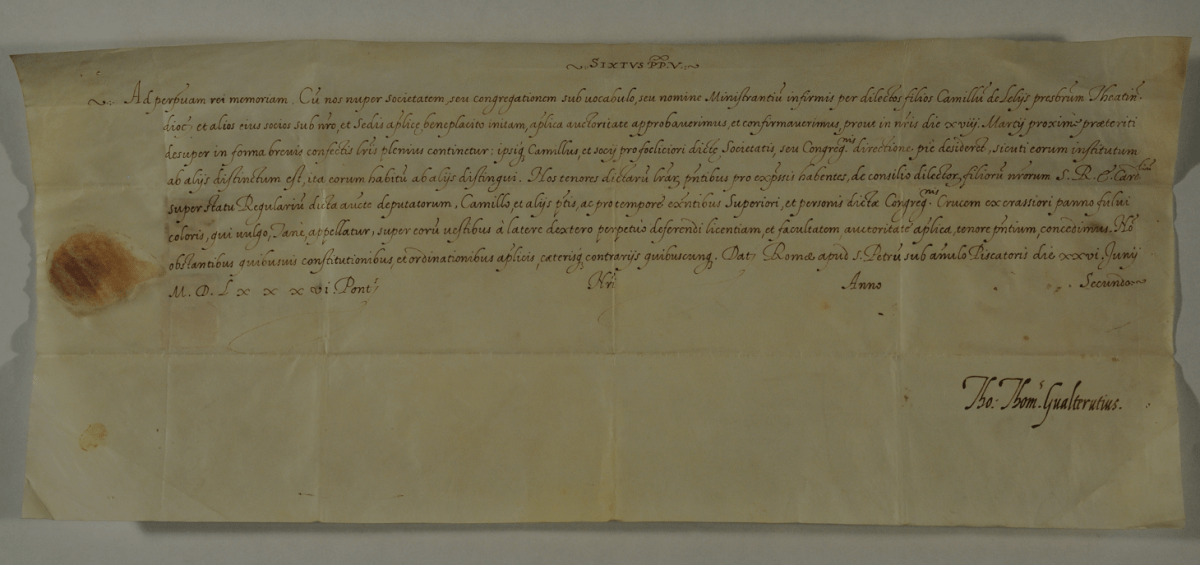 SIXTVS PP. V.
Ad perpuam rei memoriam. Cũ nos nuper societatem, seu congregationem sub vocabulo, seu nomine Ministrantiũ infirmis per dilectos filios Camillũ de Lelijs presbrum Theatin.
dioc̃, et alios eius socios sub nr̃o, et Sedis aplicę beneplacito initam, aplica auctoritate approbauerimus, et confirmauerimus, prout in nr̃is die xviij. Martij proximè præteriti
desuper in forma breuis confectis lr̃is plenius continetur: ipsiq Camillus, et socij pro foeliciori dictę Societatis, seu Congreg.nis directione, pie desiderẽt, sicuti eorum institutum
ab alijs distinctum est, ita eorum habitũ ab alijs distingui. Nos tenores dictarũ lr̃ar, pñtibus pro exp̃ssis habentes, de consilio dilector, filiorũ nrorum S. R. E. Card.lium
super statu Regulariũ dicta aucte deputatorum, Camillo, et alijs p̃tis, ac pro tempore exñtibus Superiori, et personis dictæ Congreg.nis Crucem ex crassiori panno fului
coloris, qui vulgo, Tanè, appellatur, super eorũ vestibus à latere dextero perpetuò deferendi licentiam, et facultatem auctoritate aplica, tenore pñtium, concedimus. Nõ
obstantibus quibusuis constitutionibus, et ordinationibus aplicis, cæterisq contrarijs quibuscunq. Dat, Romæ apud S. Petrũ sub anulo Piscatoris die xxvi. Junij
M. D. Lxxxvi. Pont, Nr̃i Anno Secundo
Tho: Thom.s Gualterutius.